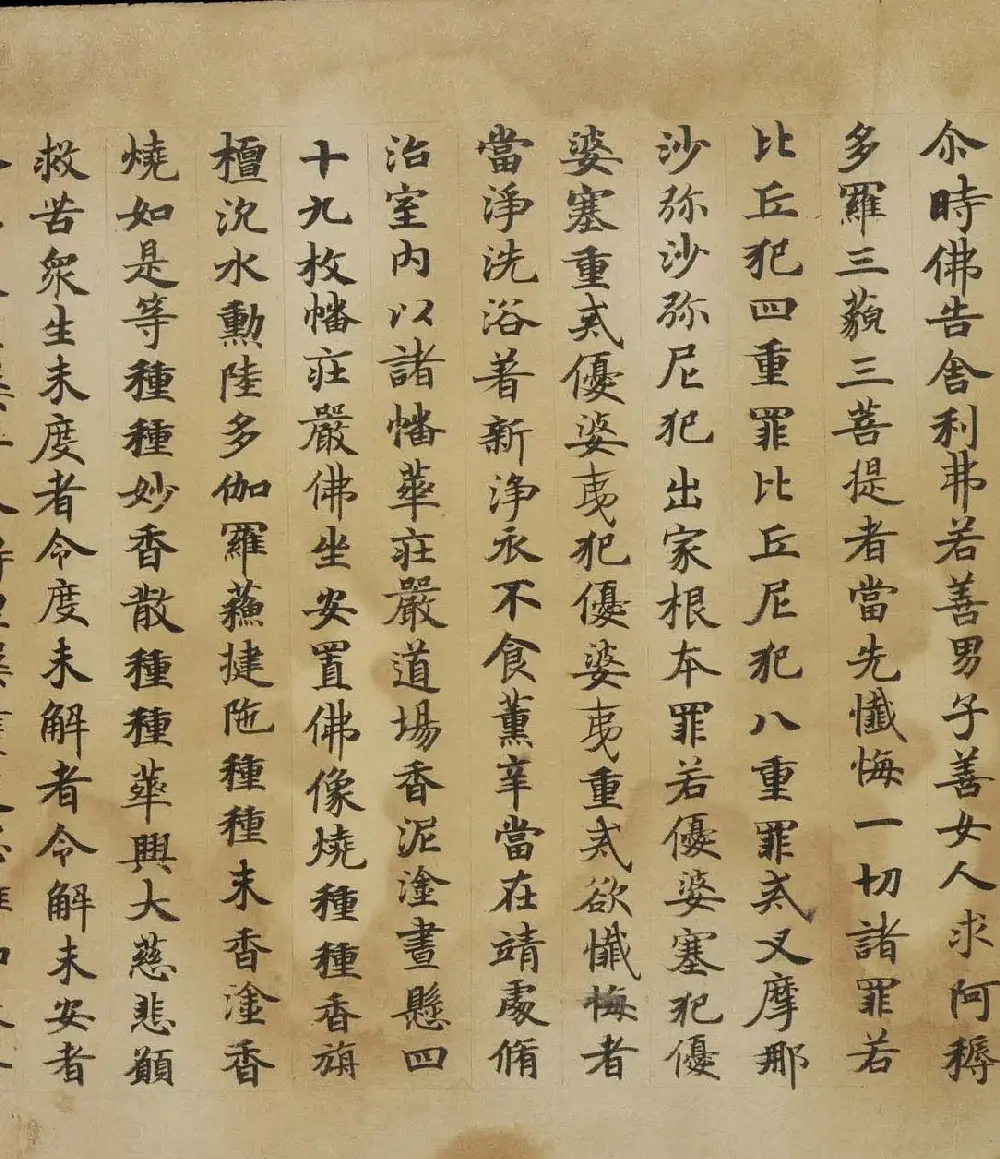 尒時佛告舎利弗若善男子善女人求阿耨
多羅三藐三菩提者當先懺悔一切諸罪若
比丘犯四重罪比丘尼犯八重罪式叉摩那
沙弥沙弥尼犯出家根本罪若優婆塞犯優
婆塞重戒優婆夷犯優婆夷重戒欲懺悔者
當淨洗浴著新淨衣不食薰辛當在靖處脩
治室內以諸幡華莊嚴道場香泥塗畫懸四
十九枚幡莊嚴佛坐安置佛像燒種種香旃
檀沉水勳陸多伽羅蘓揵陁種種末香塗香
燒如是等種種妙香散種種華興大慈悲願
救苦衆生未度者令度未解者令解未安者